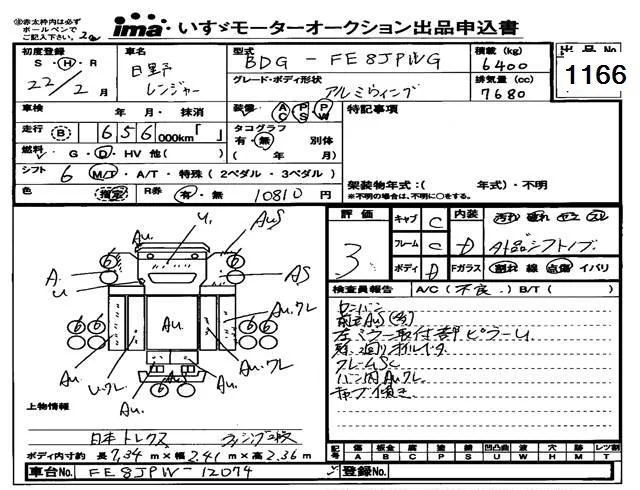 ※赤太枠内は必ずボールペンでご記入下さい。
ima いすゞモーターオークション出品申込書
出品No
1166
初度登録
S・H・R
22年2月
車名
日野
レンジャー
型式
BDG-FE8JPWG
グレード・ボディ形状
アルミウィング
積載(kg)
6400
排気量(cc)
7680
車検 年・月・抹消
装備 AC PS PW
特記事項
走行 B 656000km「 」
タコグラフ
有・無 別体
( 年 月)
燃料 G・D・HV 他( )
シフト 6 M/T・A/T・特殊(2ペダル・3ペダル)
架装物年式:( 年式)・不明
※不明の場合は、不明に○をする。
色 指定 R券 有・無 10810円
評価
3
キャブ C
フレーム C
ボディ D
内装 D
汚れ 破れ コゲ スレ
外品シフトノブ
Fガラス 割れ 線 点傷 イバリ
検査員報告 A/C(不良)B/T( )
センバン
前立AS(多)
左ミラー取付部ピラーU
フレームSC
バン内Auクレ
キャブ傾き
U.
AuS
Au.
A.
U
AS
Au.クレ
Au.
Au.クレ
Au.
U.クレ
Au.
Au.
上物情報
日本トレクス
ボディ内寸約 長7,34m×幅2.41m×高2.36m
記号
傷 板金 腐 塗 錆 凹凸曲 凹 穴 跡 レツ割
A B C P S U W H M T
車台No. FE8JPW-12074
登録No.